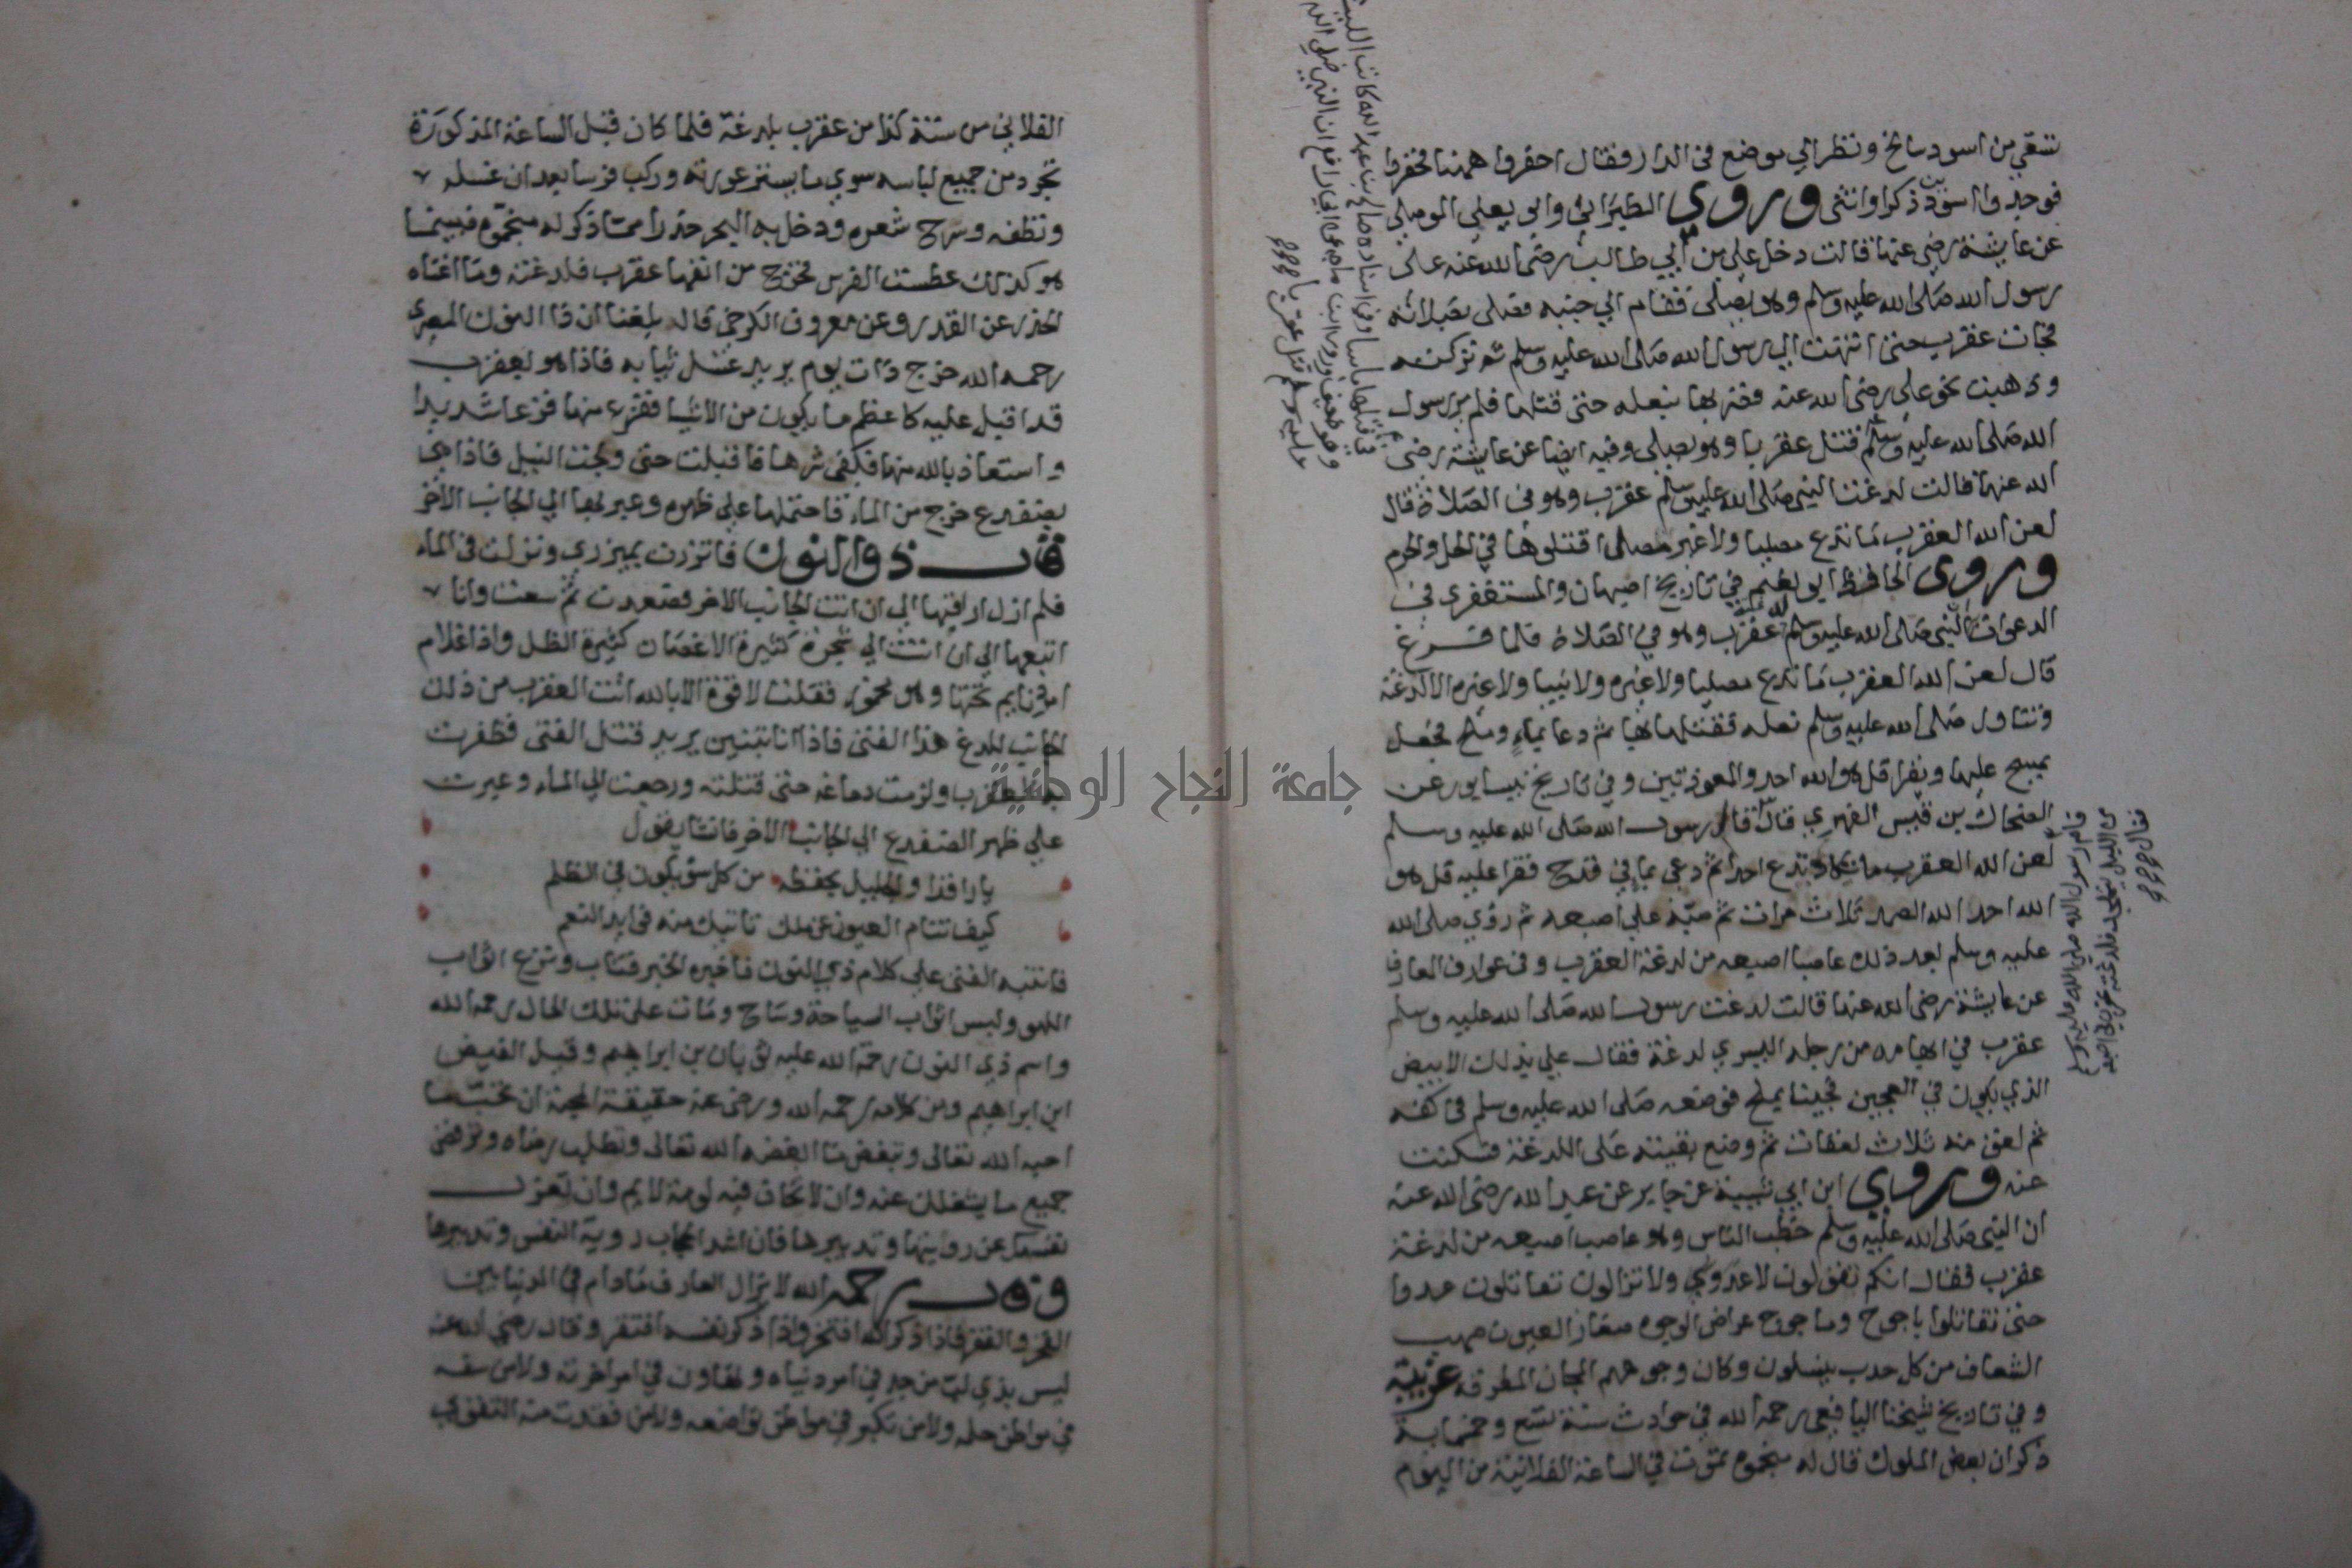 تسقي من اسود سالخ ونظر الي موضع في الدار فقال احفروا ههنا فحفروا
فوجدوا اسودين ذكرا وانثى وروي الطبراني وابي يعلي الموصلي
عن عايشة رضي عنها قالت دخل علي بن أبي طالب رضي الله عنه على
رسول الله صلى الله عليه وسلم وهو يصلى فقام الي جنبه فصلى بصلاته
فجات عقرب حتى انتهت الي رسول الله صلى الله عليه وسلم ثم تركته
وذهبت نحو علي رضي الله عنه فضربها بنعله حتى قتلها فلم ير رسول
الله صلى الله عليه وسلم فقتل عقربا وهو يصلي وفيه ايضا عن عايشة رضي
الله عنها قالت لدغت النبي صلى الله عليه وسلم عقرب وهو في الصلاة قال
لعن الله العقرب ما تدع مصليا ولا غير مصلى اقتلوها في الحل والحرم
وروى الحافظ ابو نعيم في تاريخ اصبهان والمستغفري في
الدعوات النبي صلى الله عليه وسلم عقرب وهو في الصلاة فلما فرغ
قال لعن الله العقرب ما تدع مصليا ولا غيره ولا نبيا ولا غيره الا لدغته
وتناول صلى الله عليه وسلم نعله فقتلها بها ثم دعا بماء وملح فجعل
يمسح عليها ويقرا قل هو الله احد والمعوذتين وفي تاريخ نيسابور عن
الضحاك بن قيس الفهري قال قام رسول الله صلى الله عليه وسلم
لعن الله العقرب ما تكاد تدع احدا ثم دعى بما في قدح فقرا عليه قل هو
الله احد الله الصمد ثلاث مرات ثم صبه علي اصبعه ثم رؤي صلى الله
عليه وسلم بعد ذلك عاصبا اصبعه من لدغة العقرب وفي عوارف المعارف
عن عايشة رضي الله عنها قالت لدغت رسول الله صلى الله عليه وسلم
عقرب في ابهامه من رجله اليسري لدغة فقال علي بذلك الابيض
الذي يكون في العجين فجينا بملح فوضعه صلى الله عليه وسلم في كفه
ثم لعق منه ثلاث لعقات ثم وضع بقيته على اللدغة فسكنت
عنه وروي ابن ابي شيبة عن جابر عن عبد الله رضي الله عنه
ان النبي صلى الله عليه وسلم خطب الناس وهو عاصب اصبعه من لدغة
عقرب فقال انكم تقولون لا عدو ولا تزالون تقاتلون عدوا
حتى تقاتلوا ياجوج وماجوج عراض الوجوه صغار العيون صهب
الشعاف من كل حدب ينسلون وكان وجوههم المجان المطرقة غريبة
وفي تاريخ شيخنا اليافعي رحمه الله في حوادث سنة تسع وخمماية
ذكر ان بعض الملوك قال له منجموه تموت في الساعة الفلانية من اليوم
قام رسول الله صلى الله عليه وسلم
من الليل يتهجد فلدغته عقرب في اصبعه
فقال
فاقتلوها
وهو ضعيف وروى ابن ماجه عن ابي رافع ان النبي صلى الله
عليه وسلم قتل عقربا
الفلاني من سنة كذا من عقرب بلدغة فلما كان قبل الساعة المذكورة
تجرد من جميع لباسه سوي ما يستر عورته وركب فرسا بعد ان غسله
ونظفه وسرح شعره ودخل به البحر حذرا مما ذكر له منجموه فبينما
هو كذلك عطست الفرس فخرج من انفها عقرب فلدغته وما اغناه
الحذر عن القدر وعن معروف الكرخي قال بلغنا ان ذا النون المصري
رحمه الله خرج ذات يوم يريد غسل ثيابه فاذا هو بعقرب
قد اقبل عليه كاعظم ما يكون من الاشيا ففزع منها فزعا شديدا
واستعاذ بالله منها فكفي شرها فاقبلت حتى وافت النيل فاذا هي
بضفدع خرج من الماء فاحتملها على ظهره وعبر بها الي الجانب الاخر
قال ذو النون فاتزرت بميزري ونزلت في الماء
فلم ازل ارقبها الي ان اتت الجانب الاخر فصعدت ثم سعت وانا
اتبعها الي ان اتت الي شجرة كثيرة الاغصان كثيرة الظل واذا غلام
امرد نايم تحتها وهو مخمور فقلت لا قوة الا بالله اتت العقرب من ذلك
الجانب للدغ هذا الفتى فاذا انا بتنين يريد قتل الفتى فظفرت
به العقرب ولزمت دماغه حتى قتلته ورجعت الي الماء وعبرت
علي ظهر الضفدع الي الجانب الاخر فانشا يقول
يا راقدا والجليل يحفظه من كل سو يكون في الظلم
كيف تنام العيون عن ملك تاتيك منه فوايد النعم
فانتبه الفتى علي كلام ذي النون فاخبره الخبر فتاب ونزع اثواب
اللهو ولبس اثواب السياحة وساح ومات على تلك الحال رحمه الله
واسم ذي النون رحمة الله عليه ثوبان بن ابراهيم وقيل الفيض
ابن ابراهيم ومن كلامه رحمه الله ورضي عنه حقيقة المحبة ان تحب ما
احبه الله تعالى وتبغض ما ابغضه الله تعالى وتطلب رضاه وترفض
جميع ما يشغلك عنه وان لا تخاف فيه لومة لايم وان تعزل
نفسك عن رويتها وتدبيرها فان اشد الحجاب روية النفس وتدبيرها
وقال رحمه الله لا يزال العارف ما دام في الدنيا بين
الفخر والفقر فاذا ذكر الله افتخر واذا ذكر نفسه افتقر وقال رضي الله عنه
ليس بذي لب من جد في امر دنياه وتهاون في امر اخرته ولا من سفه
في مواطن حلمه ولا من تكبر في مواطن تواضعه ولا من فقدت منه التقوي
جامعة النجاح الوطنية